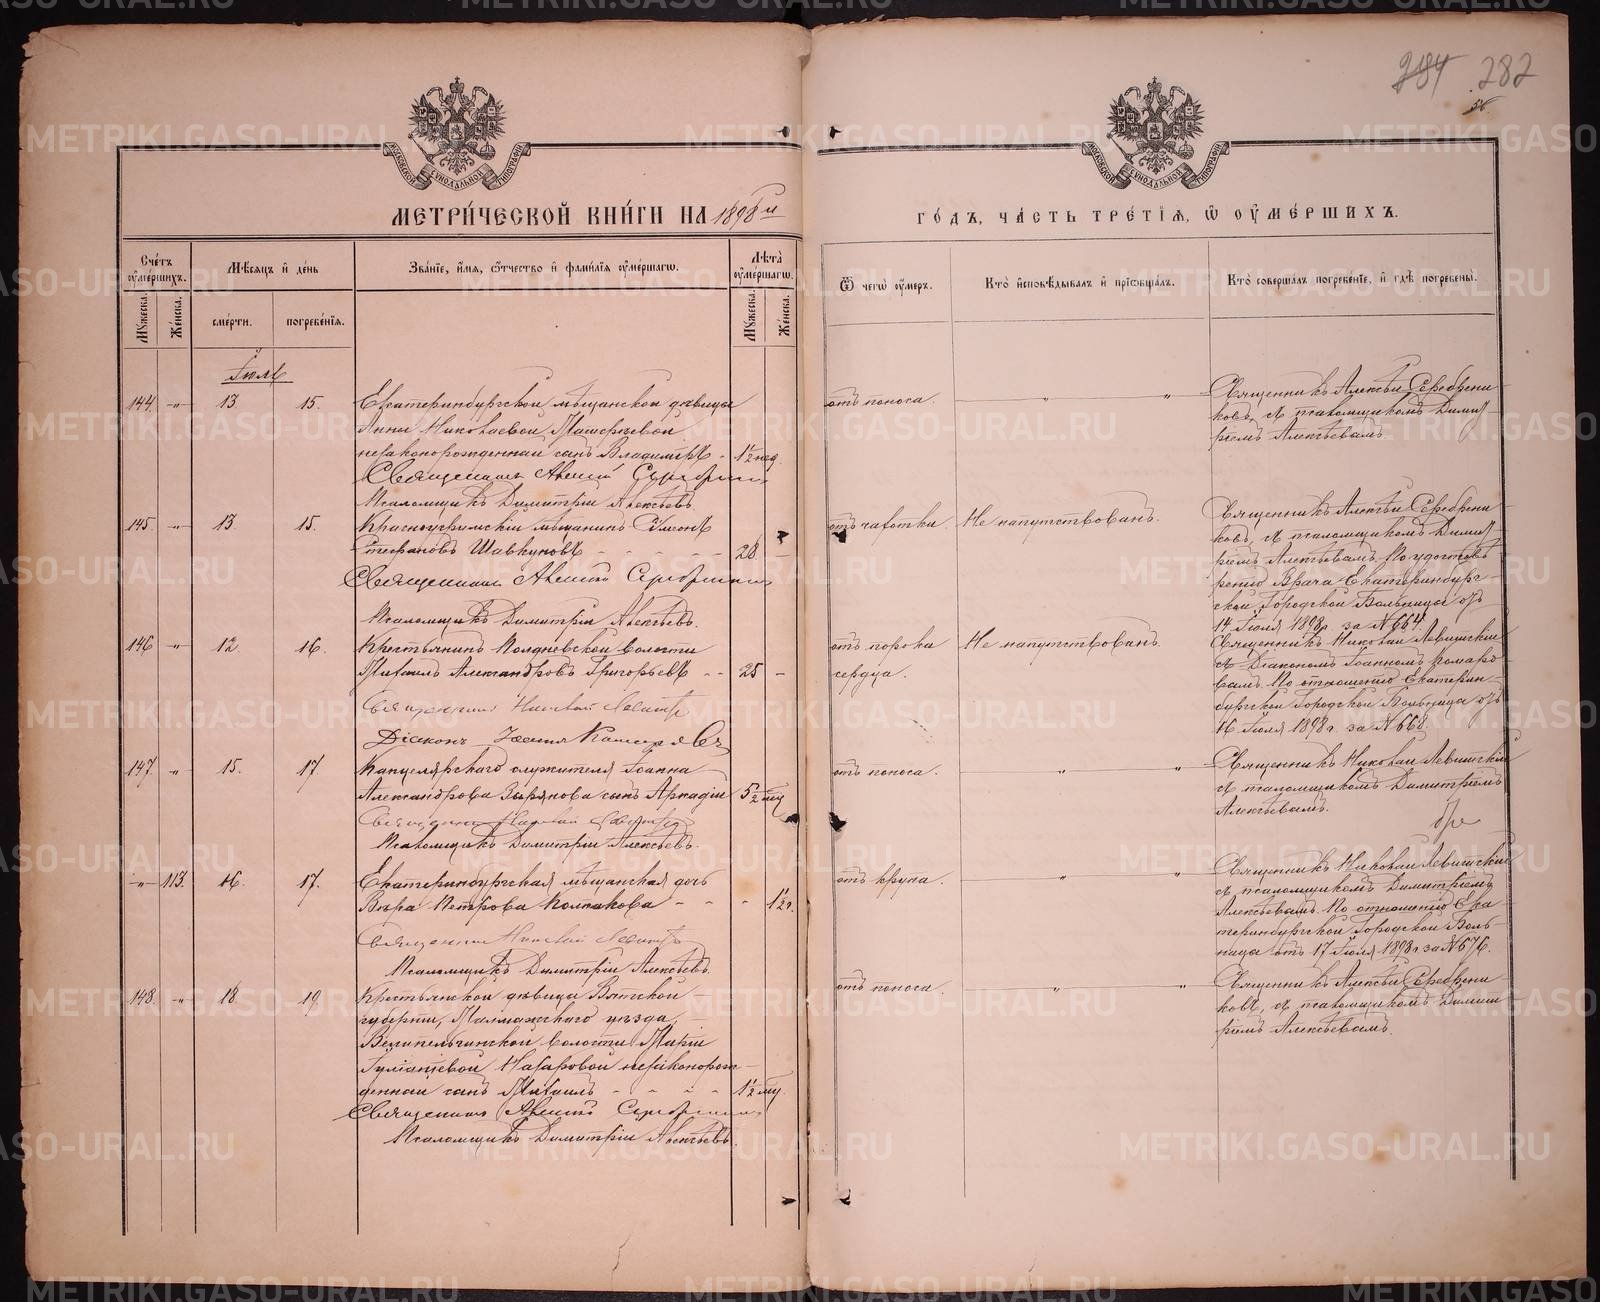 284 282
МОСКОВСКОЙ СѴНОДАЛЬНОЙ ТИПОГРАФІИ
МОСКОВСКОЙ СѴНОДАЛЬНОЙ ТИПОГРАФІИ
МЕТРИ́ЧЕСКОЙ КНИ́ГИ НА 1898 й
ГО́ДЪ, ЧА́СТЬ ТРЕ́ТІѦ, Ѿ ОУМЕ́РШИХЪ.
Сче́тъ оуме́ршихъ.
Мѣ́сѧцъ и де́нь
Зва́нїе, и́мѧ, ѻ́тчество и фами́лїѧ оуме́ршагѡ.
Лѣ́та оуме́ршагѡ.
Ѿ чегѡ̀ оу́меръ.
Кто̀ и́сповѣдывалъ и прїѡбща́лъ.
Кто̀ соверша́лъ погребе́нїе, и гдѣ̀ погребены̀.
Мꙋ́жеска. Же́нска. сме́рти. погребе́нїѧ. Мꙋ́жеска. Же́нска.
Іюль
144. -„- 13 15. Екатеринбургской мѣщанской дѣвицы
Анны Николаевой
незаконорожденный сынъ Владиміръ - 1½ нед.
Священникъ Алексій Серебрен
Псаломщикъ Димитрій Алексѣевъ
отъ поноса. „ „
Священникъ Алексѣй Серебрени
ковъ, съ псаломщикомъ Димит
ріемъ Алексѣевымъ
145 -„- 13. 15. Красноуфимскій мѣщанинъ Сѵмеонъ
Стефановъ Шавкуновъ - - - - - 28 -
Священникъ Алексій Серебренник
Псаломщикъ Димитрій Алексѣевъ.
отъ чахотки. Не напутствованъ.
Священникъ Алексѣй Серебрени
ковъ, съ псаломщикомъ Димит
ріемъ Алексѣевымъ. По удостовѣ
ренію Врача Екатеринбург
ской Городской Больницы отъ
14 Іюля 1898г. за № 664.
146 -„- 12. 16. Крестьянинъ Полдневской волости
Михаилъ Александровъ Григорьевъ - - 25 -
Священникъ Николай Левитск
Діаконъ Іоаннъ Комаровъ
отъ порока
сердца.
Не напутствованъ
Священникъ Николай Левитскій
съ Діакономъ Іоанномъ Комаро
вымъ. По отношенію Екатерин
бургской Городской Больницы отъ
16 Іюля 1898г. за № 668.
147. „ 15. 17 Канцелярскаго служителя Іоанна
Александрова Зырянова сынъ Аркадій 5½ мц
Священникъ Николай Левитск
Псаломщикъ Димитрій Алексѣевъ.
отъ поноса. „ „
Священникъ Николай Левитскій
съ псаломщикомъ Димитріемъ
Алексѣевымъ.
-„- 113. 16. 17. Екатеринбургская мѣщанская дочь
Вѣра Петрова Колпакова - - - 1½ г.
Священникъ Николай Левитск
Псаломщикъ Димитрій Алексѣевъ.
отъ крупа. „ „
Священникъ Николай Левитскій
съ псаломщикомъ Димитріемъ
Алексѣевымъ. По отношенію Ека
теринбургской Городской Боль
ницы отъ 17 Іюля 1898г. за № 676.
148. -„- 18 19. Крестьянской дѣвицы Вятской
губерніи, Малмыжскаго уѣзда,
волости Маріи
Назаровой незаконорож-
денный сынъ Михаилъ - - - - 1½ мц.
Священникъ Алексій Серебренник
Псаломщикъ Димитрій Алексѣевъ.
отъ поноса. „ „
Священникъ Алексѣй Серебрени
ковъ, съ псаломщикомъ Димит
ріемъ Алексѣевымъ.
METRIKI.GASO-URAL.RU